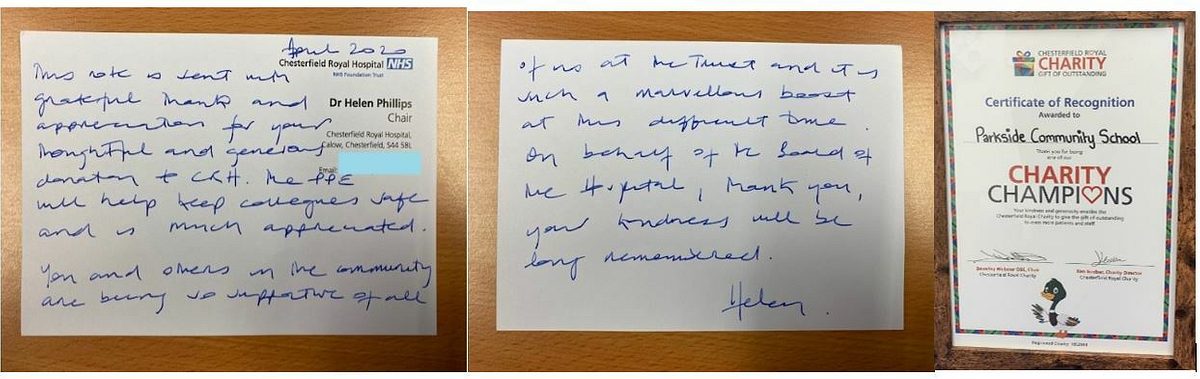 April 2020
Chesterfield Royal Hospital NHS
NHS Foundation Trust
Dr Helen Phillips
Chair
Chesterfield Royal Hospital,
Calow, Chesterfield, S44 5BL
Email:
This note is sent with
grateful thanks and
appreciation for your
thoughtful and generous
donation to CRH. The PPE
will help keep colleagues safe
and is much appreciated.
You and others in the community
are being so supportive of all
of us at the Trust and it is
such a marvellous boost
at this difficult time.
On behalf of the Board of
the Hospital, thank you,
your kindness will be
long remembered.
Helen.
CHESTERFIELD ROYAL
CHARITY
GIFT OF OUTSTANDING
Certificate of Recognition
Awarded to
Parkside Community School
Thank you for being
one of our
CHARITY
CHAMPIONS
Your kindness and generosity enables the
Chesterfield Royal Charity to give the gift of outstanding
to even more patients and staff
Chair
Chesterfield Royal Charity
Charity Director
Chesterfield Royal Charity
Registered Charity